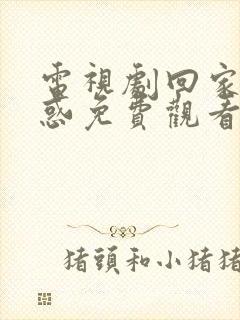 電視劇回家
惑免費觀看
猪頭和小猪猪